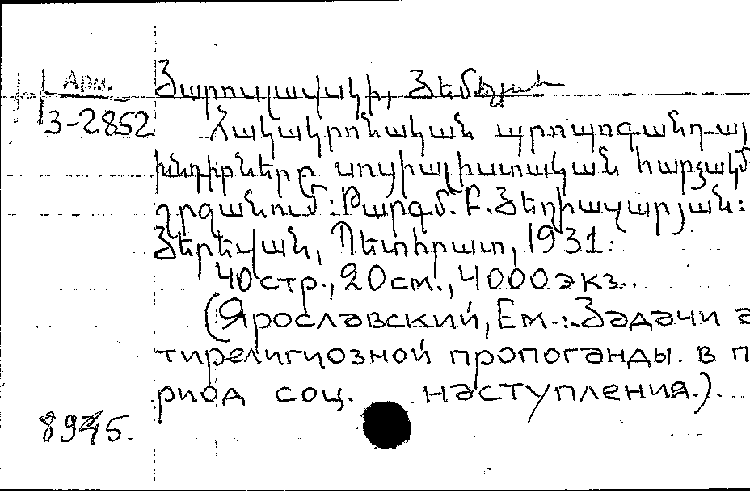 Арм.
Յարոսլավսկի, Յեմելյան
3-2852 Հակակրոնական պրոպագանդայ
խնդիրները սոցիալիստական հարձակմ
շրջանում: Թարգմ. Բ. Յեղիազարյան:
Յերեվան, Պետհրատ, 1931.
40 стр., 20 см., 4000 экз.
(Ярославский, Ем.: Задачи а
тирелигиозной пропоганды в п
риод соц. наступления.).